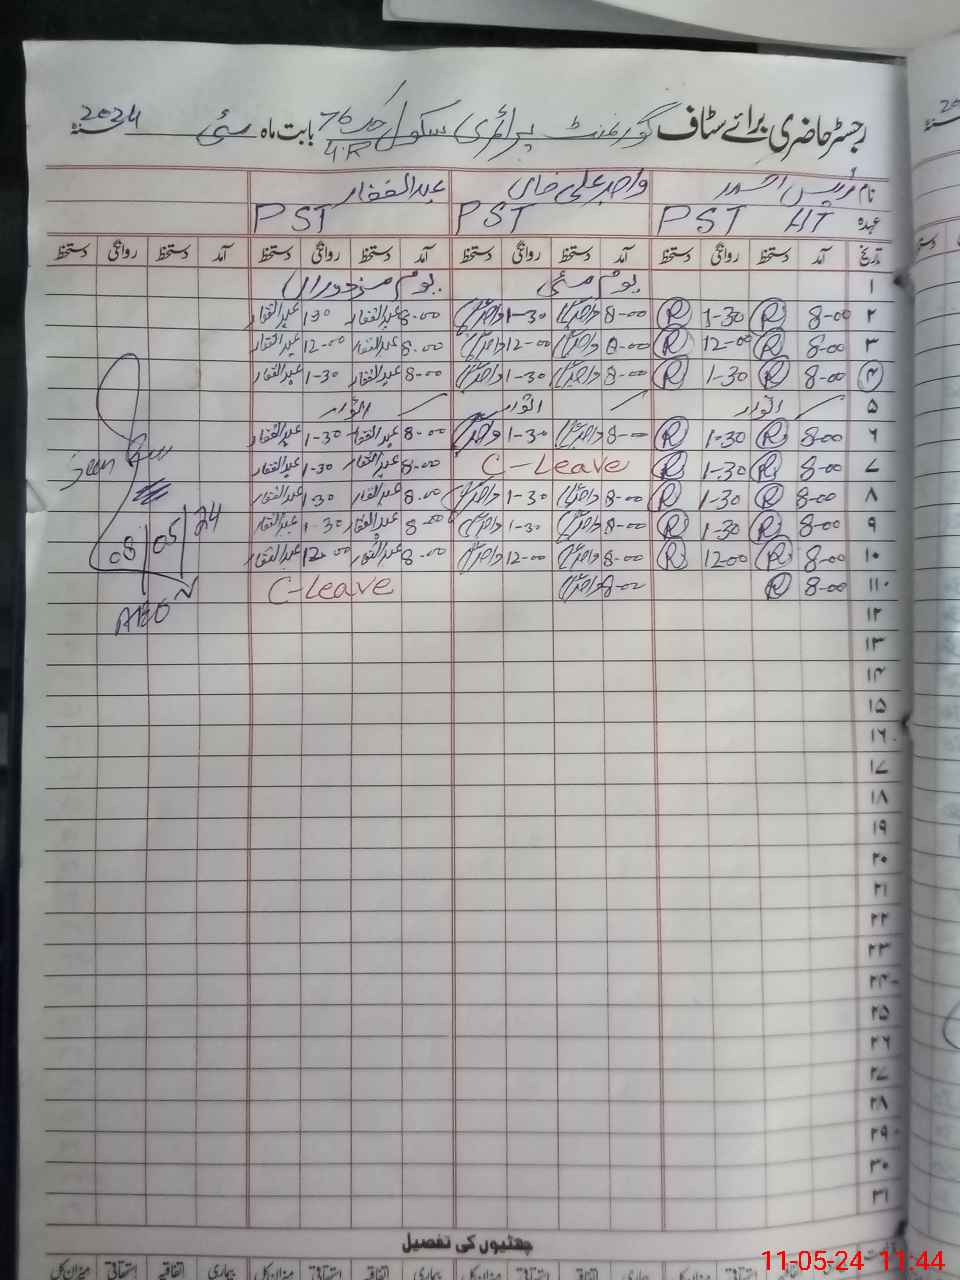 رجسٹر حاضری برائے سٹاف گورنمنٹ پرائمری سکول چک 76 بابت ماہ مئی 2024
4.R
نام عبدالغفار
عہدہ PST HT PST PST
تاریخ آمد دستخط روانگی دستخط آمد دستخط روانگی دستخط آمد دستخط روانگی دستخط آمد دستخط روانگی دستخط
۱ یوم مئی یوم مزدوراں
۲ 8-00 R 1-30 R 8-00 1-30 8-00 عبدالغفار 1-30 عبدالغفار
۳ 8-00 R 12-00 R 8-00 12-00 8-00 عبدالغفار 12-00 عبدالغفار
۴ 8-00 R 1-30 R 8-00 1-30 8-00 عبدالغفار 1-30 عبدالغفار
۵ اتوار اتوار اتوار
۶ 8-00 R 1-30 R 8-00 1-30 8-00 عبدالغفار 1-30 عبدالغفار
۷ 8-00 R 1-30 R C-Leave 8-00 عبدالغفار 1-30 عبدالغفار
۸ 8-00 R 1-30 R 8-00 1-30 8-00 عبدالغفار 1-30 عبدالغفار
۹ 8-00 R 1-30 R 8-00 1-30 8-00 عبدالغفار 1-30 عبدالغفار
۱۰ 8-00 R 12-00 R 8-00 12-00 8-00 عبدالغفار 12-00 عبدالغفار
۱۱ 8-00 R 8-00 C-Leave
Seen
08/05/24
AEO
۱۲
۱۳
۱۴
۱۵
۱۶
۱۷
۱۸
۱۹
۲۰
۲۱
۲۲
۲۳
۲۴
۲۵
۲۶
۲۷
۲۸
۲۹
۳۰
۳۱
چھٹیوں کی تفصیل
بیماری اتفاقیہ استحقاقی میزان کل بیماری اتفاقیہ استحقاقی میزان کل
11-05-24 11:44